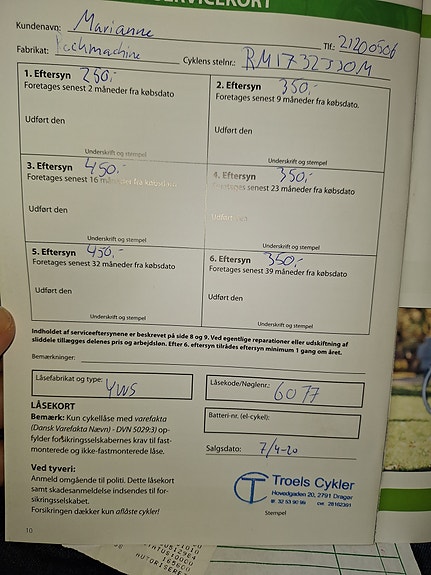 SERVICEKORT
Kundenavn: Marianne Tlf.: 21200506
Fabrikat: Cyklens stelnr.: RM1732330M
1. Eftersyn 250,-
Foretages senest 2 måneder fra købsdato
Udført den
Underskrift og stempel
2. Eftersyn 350,-
Foretages senest 9 måneder fra købsdato.
Udført den
Underskrift og stempel
3. Eftersyn 450,-
Foretages senest 16 måneder fra købsdato.
Udført den
Underskrift og stempel
4. Eftersyn 350,-
Foretages senest 23 måneder fra købsdato
Udført den
Underskrift og stempel
5. Eftersyn 450,-
Foretages senest 32 måneder fra købsdato
Udført den
Underskrift og stempel
6. Eftersyn 350,-
Foretages senest 39 måneder fra købsdato
Udført den
Underskrift og stempel
Indholdet af serviceeftersynene er beskrevet på side 8 og 9. Ved egentlige reparationer eller udskiftning af
sliddele tillægges delenes pris og arbejdsløn. Efter 6. eftersyn tilrådes eftersyn minimum 1 gang om året.
Bemærkninger:
Låsefabrikat og type: YWS
Låsekode/Nøglenr.: 6077
LÅSEKORT
Bemærk: Kun cykellåse med varefakta
(Dansk Varefakta Nævn) - DVN 5029:3) op-
fylder forsikringsselskabernes krav til fast-
monterede og ikke-fastmonterede låse.
Batteri-nr. (el-cykel):
Salgsdato: 7/4-20
Ved tyveri:
Anmeld omgående til politi. Dette låsekort
samt skadesanmeldelse indsendes til for-
sikringsselskabet.
Forsikringen dækker kun aflåste cykler!
CT Troels Cykler
Hovedgaden 20, 2791 Dragør
tlf. 32 53 90 98 cvr. 28162391
Stempel
10